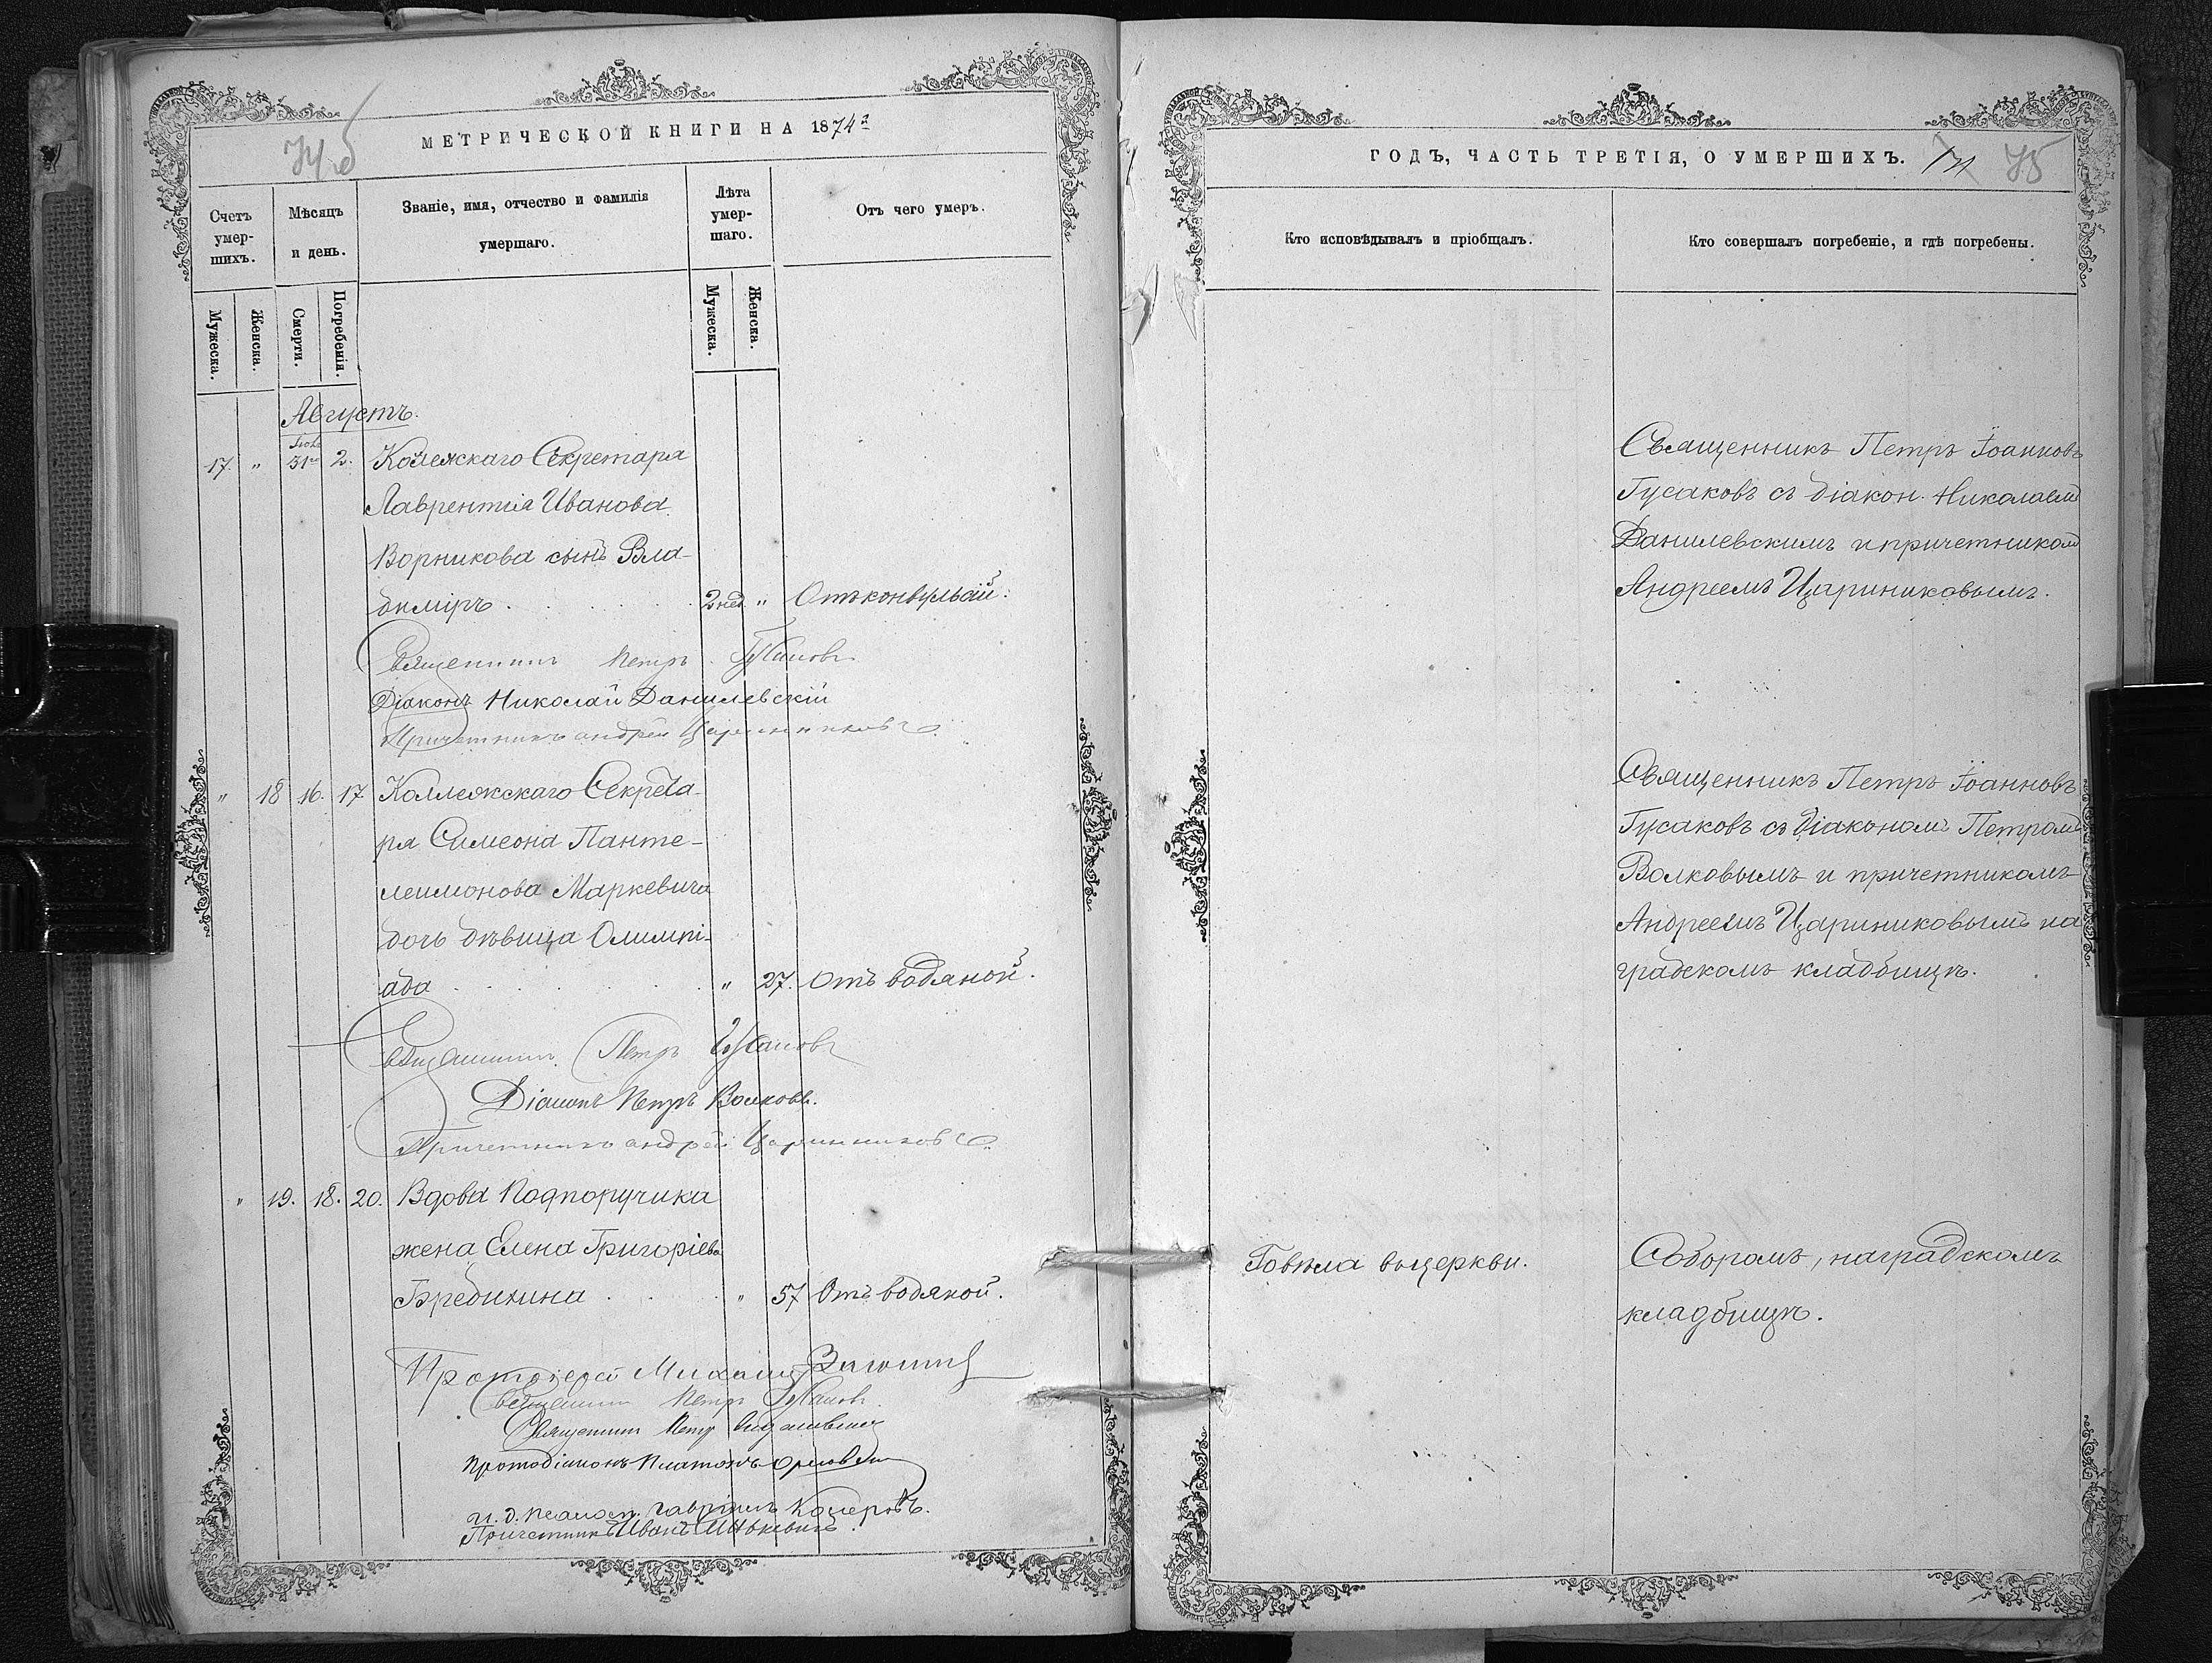 МЕТРИЧЕСКОЙ КНИГИ НА 1874й
Счетъ умер-шихъ.
Мѣсяцъ и день.
Званіе, имя, отчество и фамилія
умершаго.
Лѣта умер-шаго.
Отъ чего умеръ.
Мужеска.
Женска.
Смерти.
Погребенія.
Мужеска.
Женска.
Августъ.
17. " 31го 2. Коллежскаго Секретаря
Лаврентія Иванова
Ворникова сынъ Вла-
диміръ . . . . . 2 нед. " Отъ конвульсій.
Священникъ Петръ Гусаковъ
Діаконъ Николай Данилевскій
Причетникъ андрей Цариниковъ
" 18 16. 17 Коллежскаго Секрета-
ря Симеона Панте-
леимонова Маркевича
дочь дѣвица Олимпі-
ада . . . . . " 27. Отъ водяной.
Священникъ Петръ Гусаковъ
Діаконъ Петръ Волковъ.
Причетникъ андрей Цариниковъ
" 19. 18. 20. Вдова Подпоручика
жена Елена Григоріева
Бредихина . . . " 57 Отъ водяной.
Протоіерей Михаилъ
Священникъ Петръ Гусаковъ
Священникъ Петръ
Протодіаконъ Платонъ
и. д. псалом. Гавріилъ
Причетникъ Иванъ
ГОДЪ, ЧАСТЬ ТРЕТІЯ, О УМЕРШИХЪ. 75
Кто исповѣдывалъ и пріобщалъ.
Кто совершалъ погребеніе, и гдѣ погребены.
Священникъ Петръ Іоанновъ
Гусаковъ съ діакон. Николаемъ
Данилевскимъ и причетникомъ
Андреемъ Цариниковымъ.
Священникъ Петръ Іоанновъ
Гусаковъ съ діакономъ Петромъ
Волковымъ и причетникомъ
Андреемъ Цариниковымъ на
градскомъ кладбищѣ.
Говѣла въ церкви.
Соборомъ, на градскомъ
кладбищѣ.